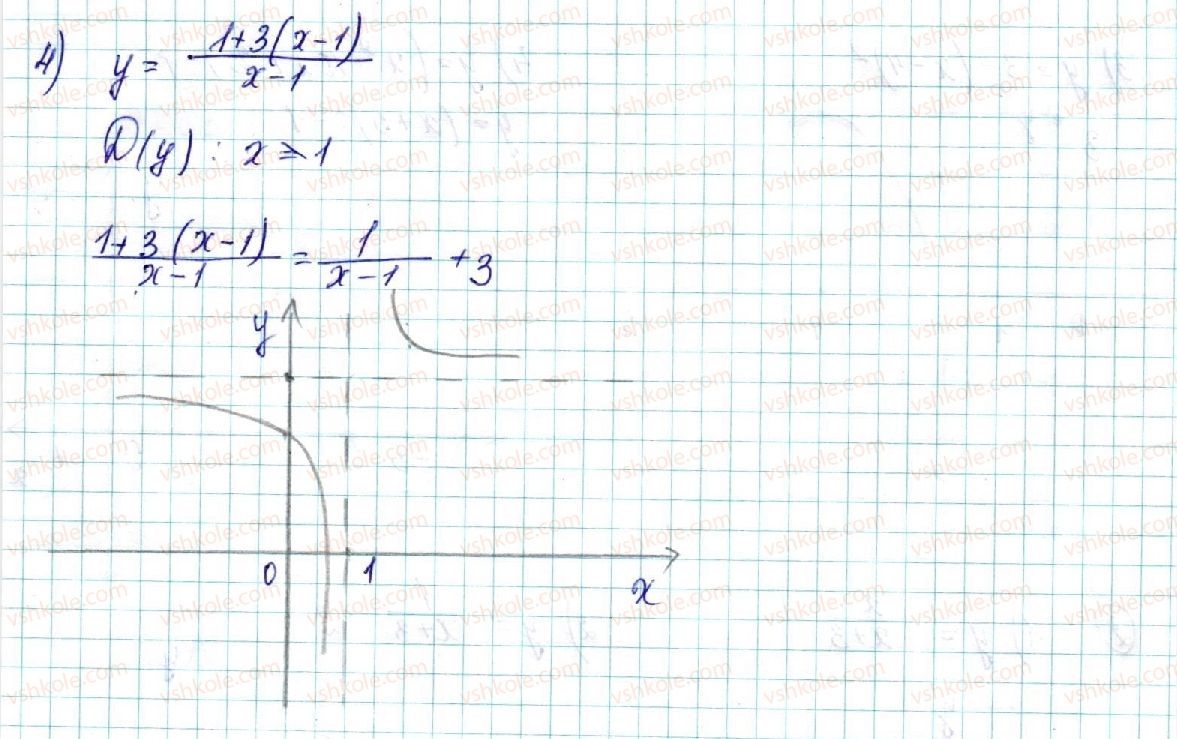 4) y = \frac{1+3(x-1)}{x-1}
D(y) : x ≠ 1
\frac{1+3(x-1)}{x-1} = \frac{1}{x-1} + 3
y
0 1
x
vshkole.com